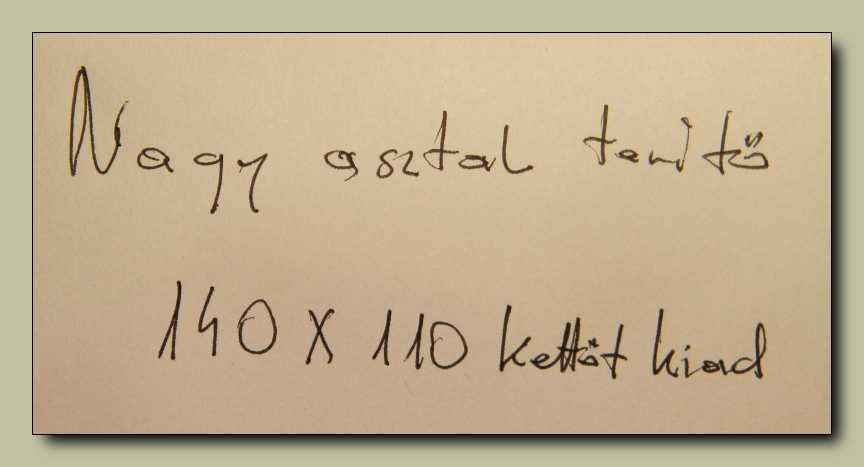 Nagy asztal terítő
140 X 110 kettőt kiad